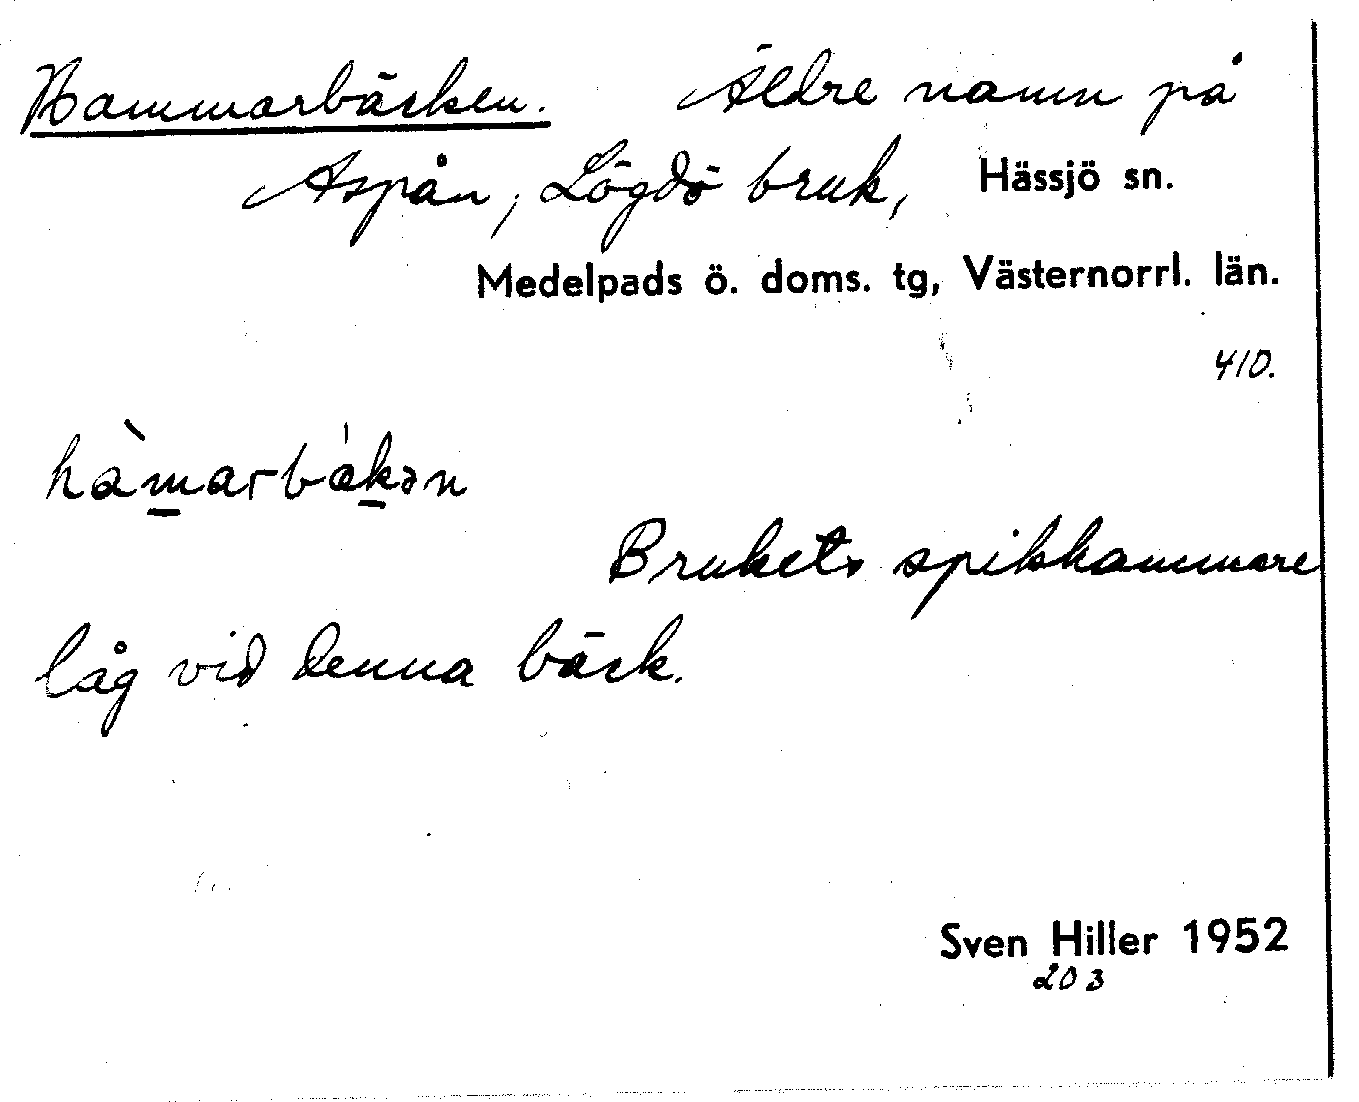 Hammarbäcken. Äldre namn på
Aspån, Lögdö bruk, Hässjö sn.
Medelpads ö. doms. tg, Västernorrl. län.
410.
hàm̲arbák̲ən
Brukets spikhammare
låg vid denna bäck.
Sven Hiller 1952
203